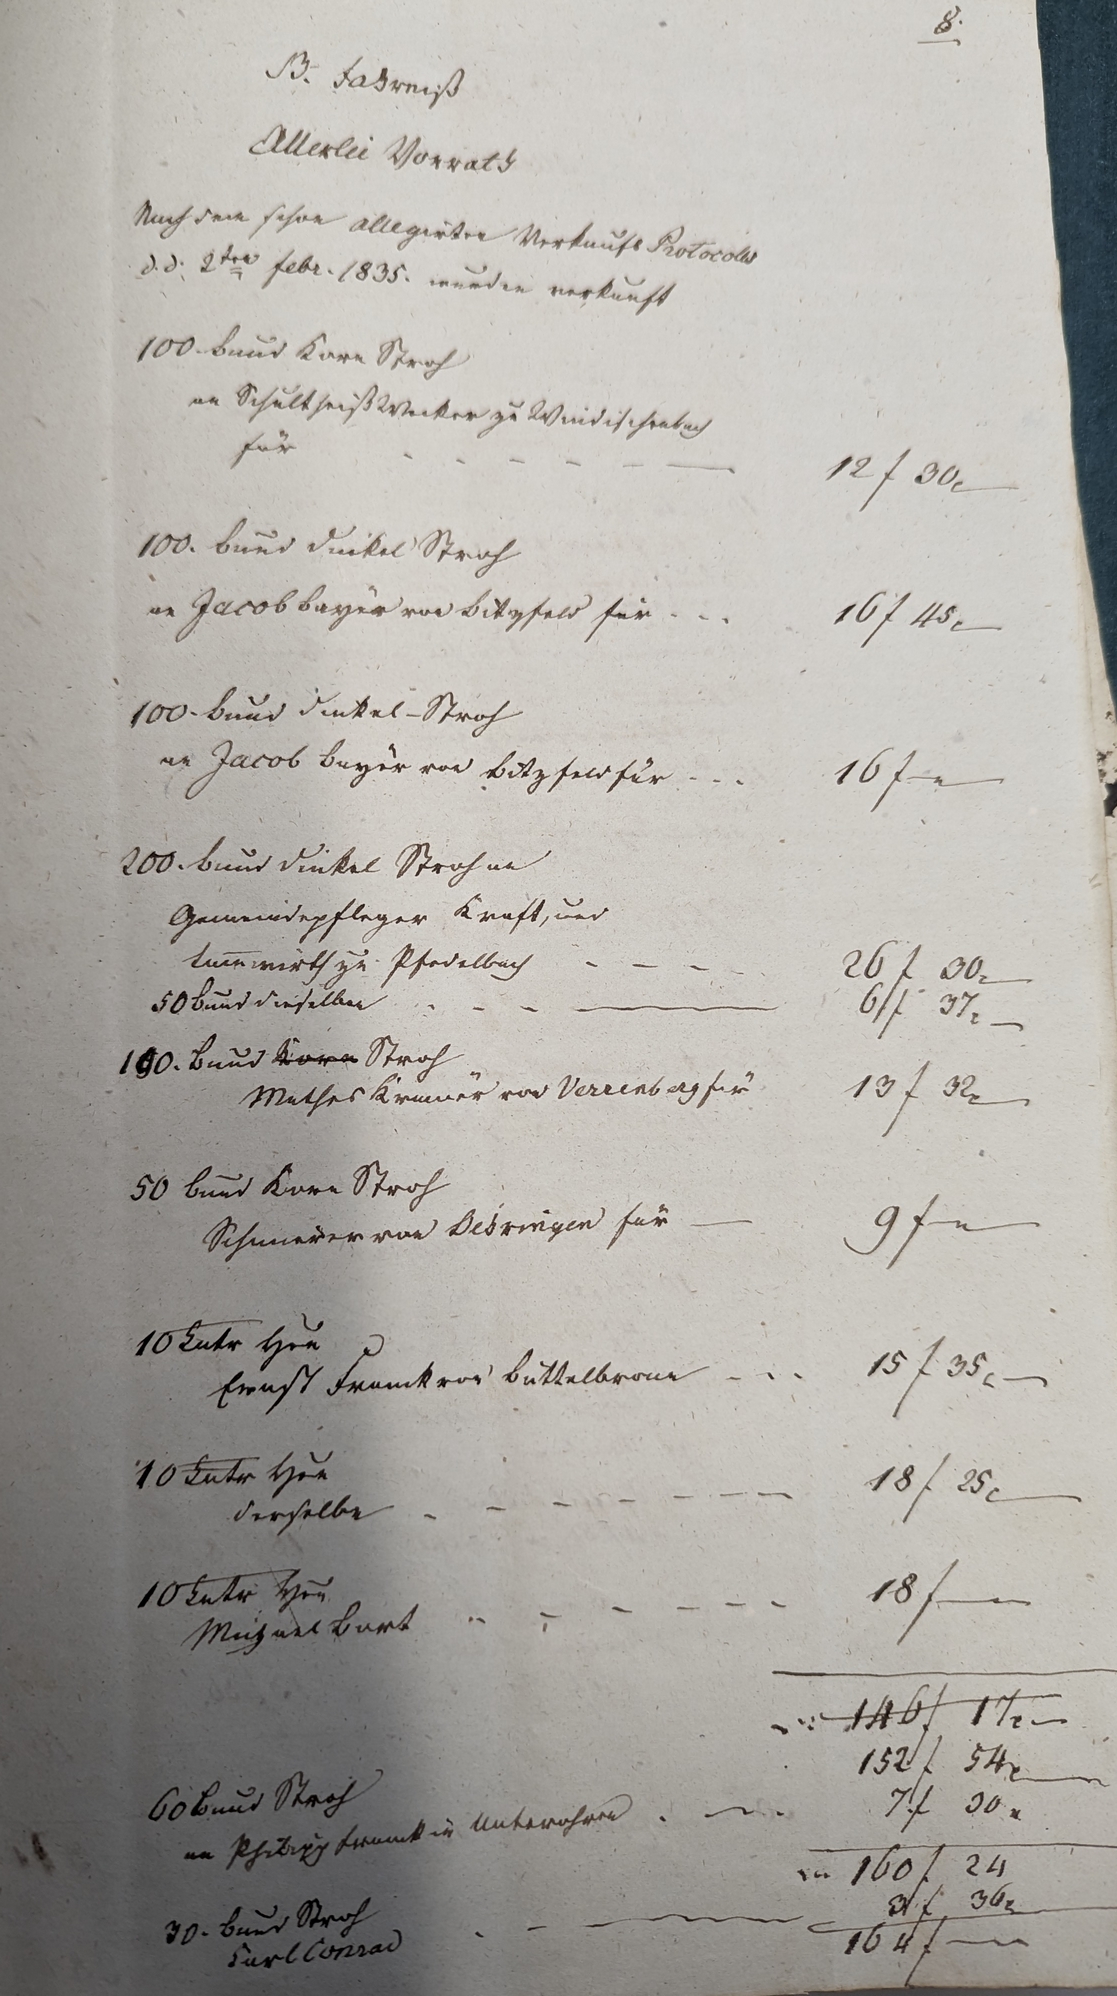 8.
B. Fahrniß
Allerlei Vorrath
Nach dem schon allegirten Verkaufs Protocolls
d. d. 2ten Febr. 1835. wurden verkauft
100. Bund Korn Stroh
an Schultheiß Weker zu Windischenbach
für - - - - - - 12 f 30 x
100. Bund Dinkel Stroh
an Jacob Bayer von Bitzfeld für - - - 16 f 45 x
100. Bund Dinkel-Stroh
an Jacob Bayer von Bitzfeld für - - - 16 f —
200. Bund Dinkel Stroh an
Gemeindepfleger Kraft, und
wirth zu Pfedelbach - - - - 26 f 30 x
50 Bund dieselben - - - 6 f 37 x
100. Bund Korn Stroh
Mathes Kramer von Verrenberg für 13 f 32 x
50 Bund Korn Stroh
von Oehringen für — 9 f —
10 Cntr Heu
Ernst Franck von Büttelbronn - - - 15 f 35 x
10 Cntr Heu
derselbe - - - - - - - 18 f 25 x
10 Cntr Heu
Michael Bort - - - - - - 18 f —
146 f 17 x
152 f 54 x
60 Bund Stroh
an Philipp Franck in Unterohrn - - - 7 f 30 x
160 f 24
30. Bund Stroh 3 f 36 x
Carl Conrad 164 f —